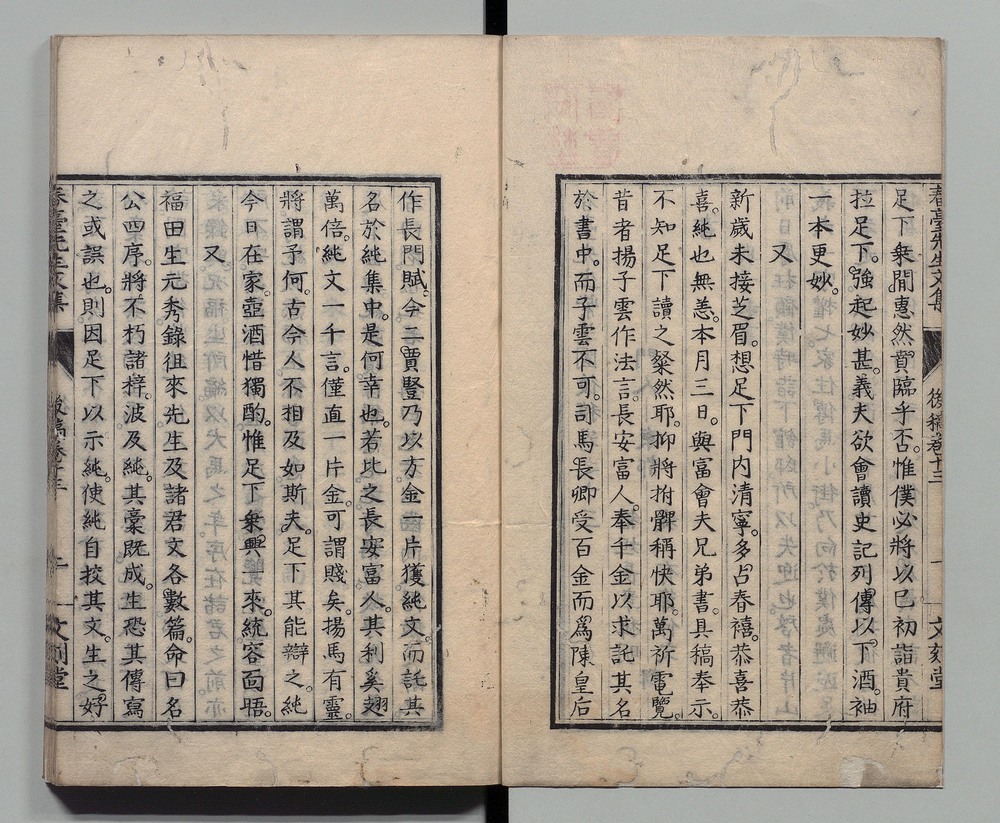 春臺先生文集 後稿卷十三 文刻堂
足下乘閒惠然賁臨乎否。惟僕必將以巳初詣貴府
拉足下。強起妙甚。義夫欲會讀史記列傳以下酒。袖
一本更妙。
又
新歲未接芝眉。想足下門內清寧。多占春禧。恭喜恭
喜。純也無恙。本月三日。與富會夫兄弟書。具稿奉示。
不知足下讀之粲然耶。抑將拊髀稱快耶。萬祈電覽。
昔者揚子雲作法言。長安富人。奉千金以求託其名
於書中。而子雲不可。司馬長卿受百金而爲陳皇后
作長門賦。今二賈豎乃以方金一片獲純文。而託其
名於純集中。是何幸也。若比之長安富人。其利奚翅
萬倍。純文一千言。僅直一片金。可謂賤矣。揚馬有靈。
將謂予何。古今人不相及如斯夫。足下其能辯之純
今日在家。壺酒惜獨酌。惟足下乘興一來。統容面晤。
又
福田生元秀錄徂來先生及諸君文各數篇。命曰名
公四序。將不朽諸梓。波及純。純其稾既成。生恐其傳寫
之或誤也。則因足下以示純。使純自挍其文。生之好
春臺先生文集 後稿卷十三 文刻堂